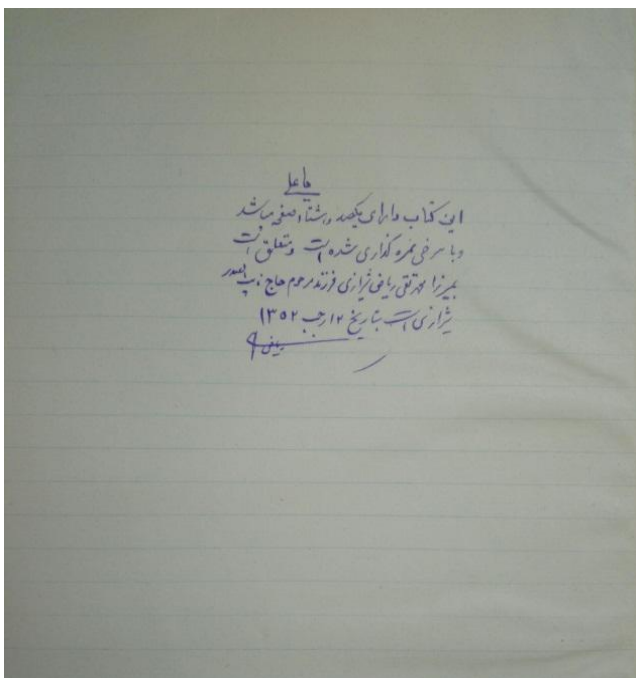 یا علی
این کتاب دارای یکصد و هشتاد صفحه میباشد
و با سرخی نمره گذاری شده است و متعلق است
بمیرزا محمد تقی ریاضی شیرازی فرزند مرحوم حاج
شیرازی است بتاریخ ۱۲ رجب ۱۳۵۲